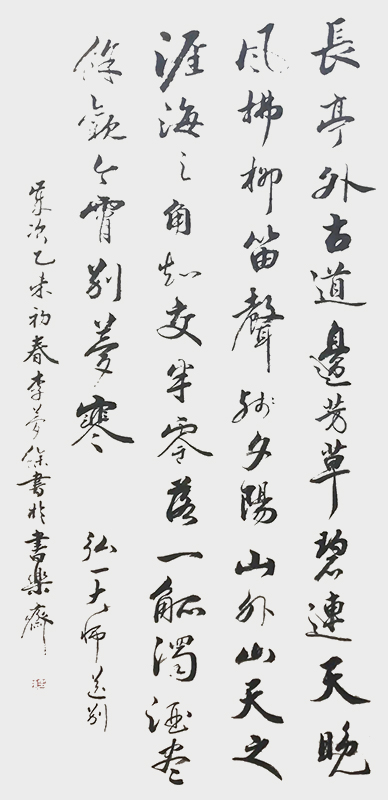 長亭外古道邊芳草碧連天晚
風拂柳笛聲殘夕陽山外山天之
涯海之角知交半零落一觚濁酒盡
餘歡今宵別夢寒
弘一大師送別
歲次乙未初春李夢保書於書樂齋